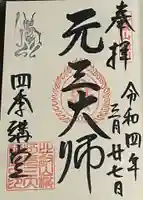 奉拝
令和四年
三月廿七日
元三大師
四季講堂